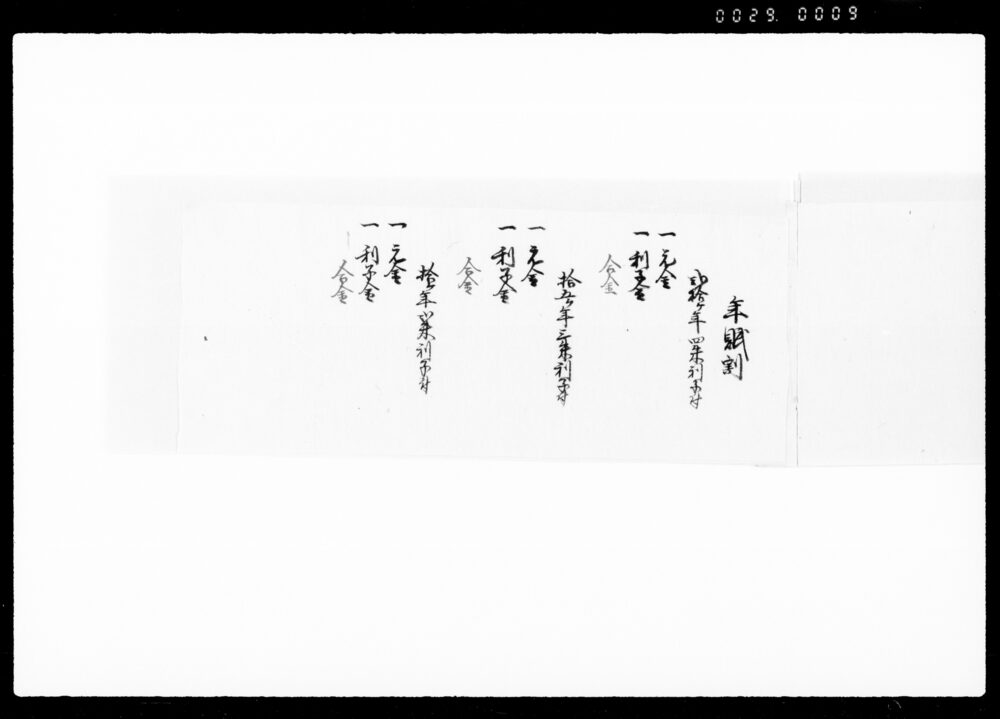 0029. 0009
年賦割
弐拾ケ年四朱利子付
一元金
一利子金
合金
拾五ケ年三朱利子付
一元金
一利子金
合金
拾ケ年弐朱利子付
一元金
一利子金
合金